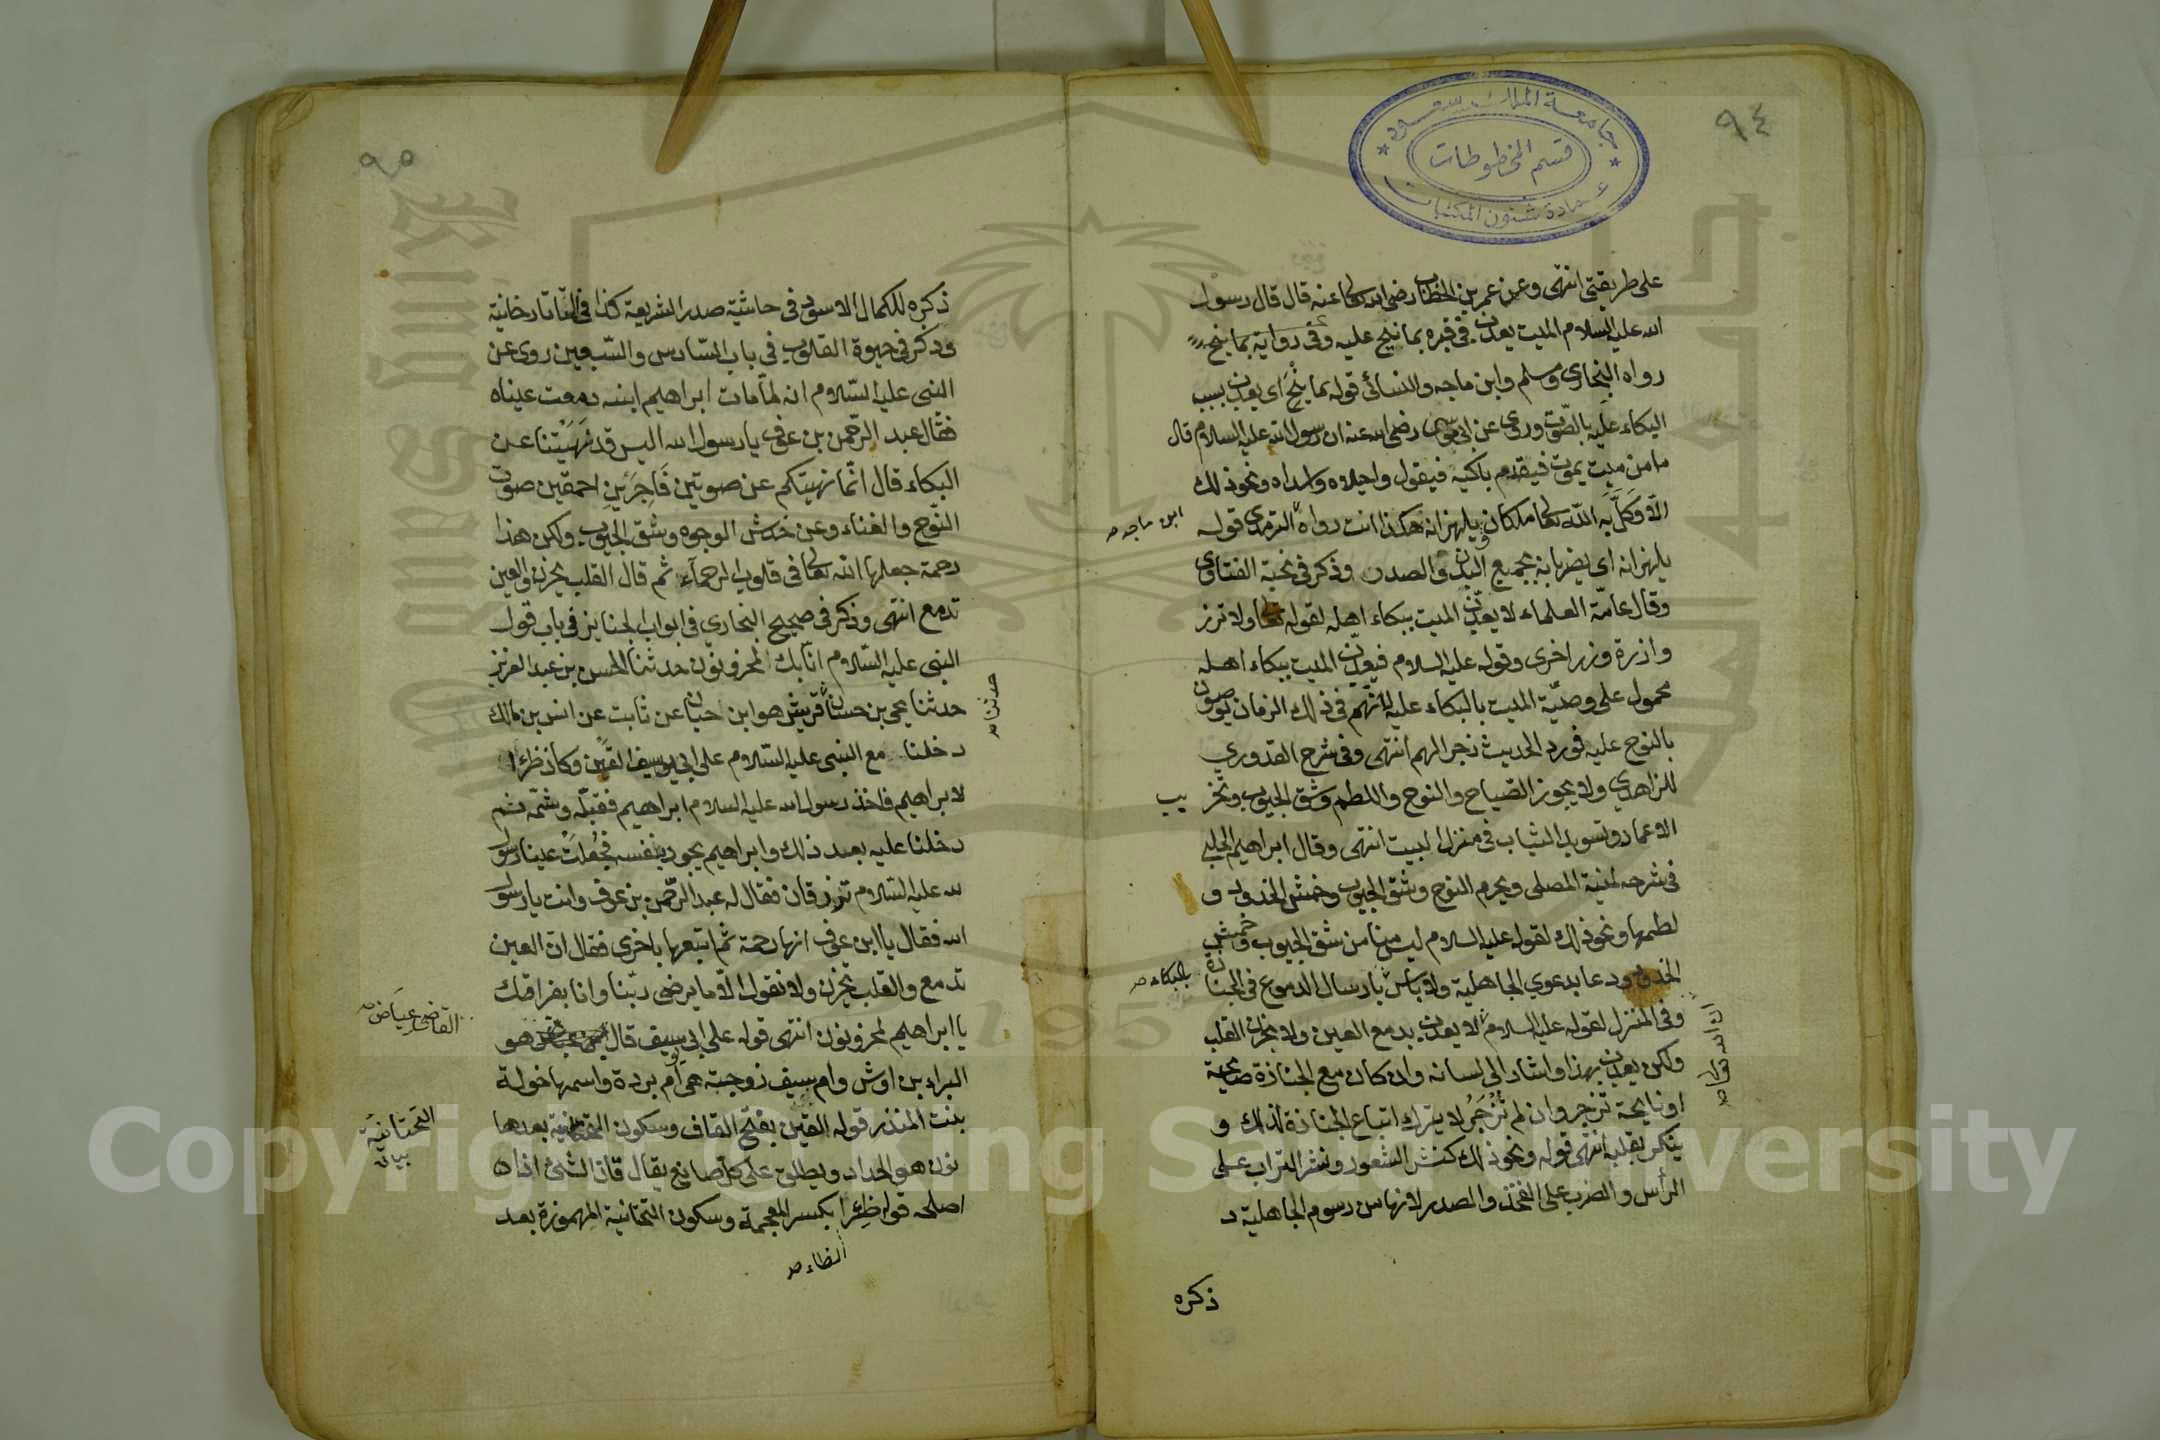 ٩٤
جامعة الملك سعود
قسم المخطوطات
عمادة شئون المكتبات
على طريقتى انتهى وعن عمر بن الخطاب رضى الله تعالى عنه قال قال رسول
الله عليه السلام الميت يعذب فى قبره بما نيح عليه وفى رواية بما ينح
رواه البخارى ومسلم وابن ماجه والنسائى قوله بما ينح اى يعذب بسبب
البكاء عليه بالصوت وروى عن ابى موسى رضى الله عنه ان رسول الله عليه السلام قال
ما من ميت يموت فيقوم باكيه فيقول واجبلاه واسنداه ونحو ذلك
الا وكل به الله تعالى ملكان يلهزانه هكذا انت رواه الترمذى قوله
ابن ماجه صح
يلهزانه اى يضربانه بجميع اليدين والصدر وذكر فى نخبة الفتاوى
وقال عامة العلماء لا يعذب الميت ببكاء اهله لقوله تعالى ولا تزر
وازرة وزر اخرى وقوله عليه السلام فيعذب الميت ببكاء اهله
محمول على وصية الميت بالبكاء عليه لانهم فى ذلك الزمان يوصون
بالنوح عليه فورد الحديث زجرا لهم انتهى وفى شرح القدوري
للزاهدي ولا يجوز الصياح والنوح واللطم وشق الجيوب وتخر
يب
الاعماد وتسويد الثياب فى منزل الميت انتهى وقال ابراهيم الحلبى
فى شرحه لمنية المصلى ويحرم النوح وشق الجيوب وخمش الخدود و
لطمها ونحو ذلك لقوله عليه السلام ليس منا من شق الجيوب وخمش
الخدود ودعا بدعوي الجاهلية ولا باس بارسال الدموع فى الجنازة
بالبكاء صح
وفى المنزل لقوله عليه السلام لا يعذب بدمع العين ولا بحزن القلب
ان الله تعالى صح
ولكن يعذب بهذا واشار الى لسانه وان كان مع الجنازة صايحة
او نايحة تزجر وان لم تزجر لا يترك اتباع الجنازة لذلك و
ينكر بقلبه انتهى قوله ونحو ذلك كنشر الشعور ونشر التراب على
الرأس والضرب على الفخذ والصدر لانها من رسوم الجاهلية د
ذكره
٩٥
ذكره للكمال الاسود فى حاشية صدر الشريعة كذا فى التاتارخانية
وذكر فى حيوة القلوب فى باب السادس والسبعين روى عن
النبى عليه السلام انه لما مات ابراهيم ابنه دمعت عيناه
فقال عبد الرحمن بن عوف يا رسول الله اليس قد نهيتنا عن
البكاء قال انما نهيتكم عن صوتين فاجرين احمقين صوت
النوح والغناء وعن خدش الوجوه وشق الجيوب ولكن هذا
رحمة جعلها الله تعالى فى قلوب الرحمآء ثم قال القلب يحزن والعين
تدمع انتهى وذكر فى صحيح البخاري فى ابواب الجنايز فى باب قول
النبى عليه السلام انا بك لمحزونون حدثنا الحسن بن عبد العزيز
حدثنا يحيى بن حسان قريش هو ابن حيان عن ثابت عن انس بن مالك
حدثنا صح
دخلنا مع النبى عليه السلام على ابى يوسيف القين وكان ظئرا
لابراهيم فاخذ رسول الله عليه السلام ابراهيم فقبله وشمه ثم
دخلنا عليه بعد ذلك وابراهيم يجود بنفسه فجعلت عينا رسول
لله عليه السلام تذرفان فقال له عبد الرحمن بن عوف وانت يا رسول
الله فقال يا ابن عوف انها رحمة ثم اتبعها باخرى فقال ان العين
تدمع والقلب يحزن ولا نقول الا ما يرضى ربنا وانا بفراقك
يا ابراهيم لمحزونون انتهى قوله على ابى سيف قال هو
القاضى عياض صح
البراء بن اوس وام سيف زوجته هى ام بردة واسمها خولة
بنت المنذر قوله القين بفتح القاف وسكون التحتانية بعدها
التحتانية
بيان
نون هو الحداد ويطلق على كل صانع يقال قان الشئ اذا
اصلحه قوله ظئرا بكسر المعجمة وسكون التحتانية المهموزة بعد
الظاء صح